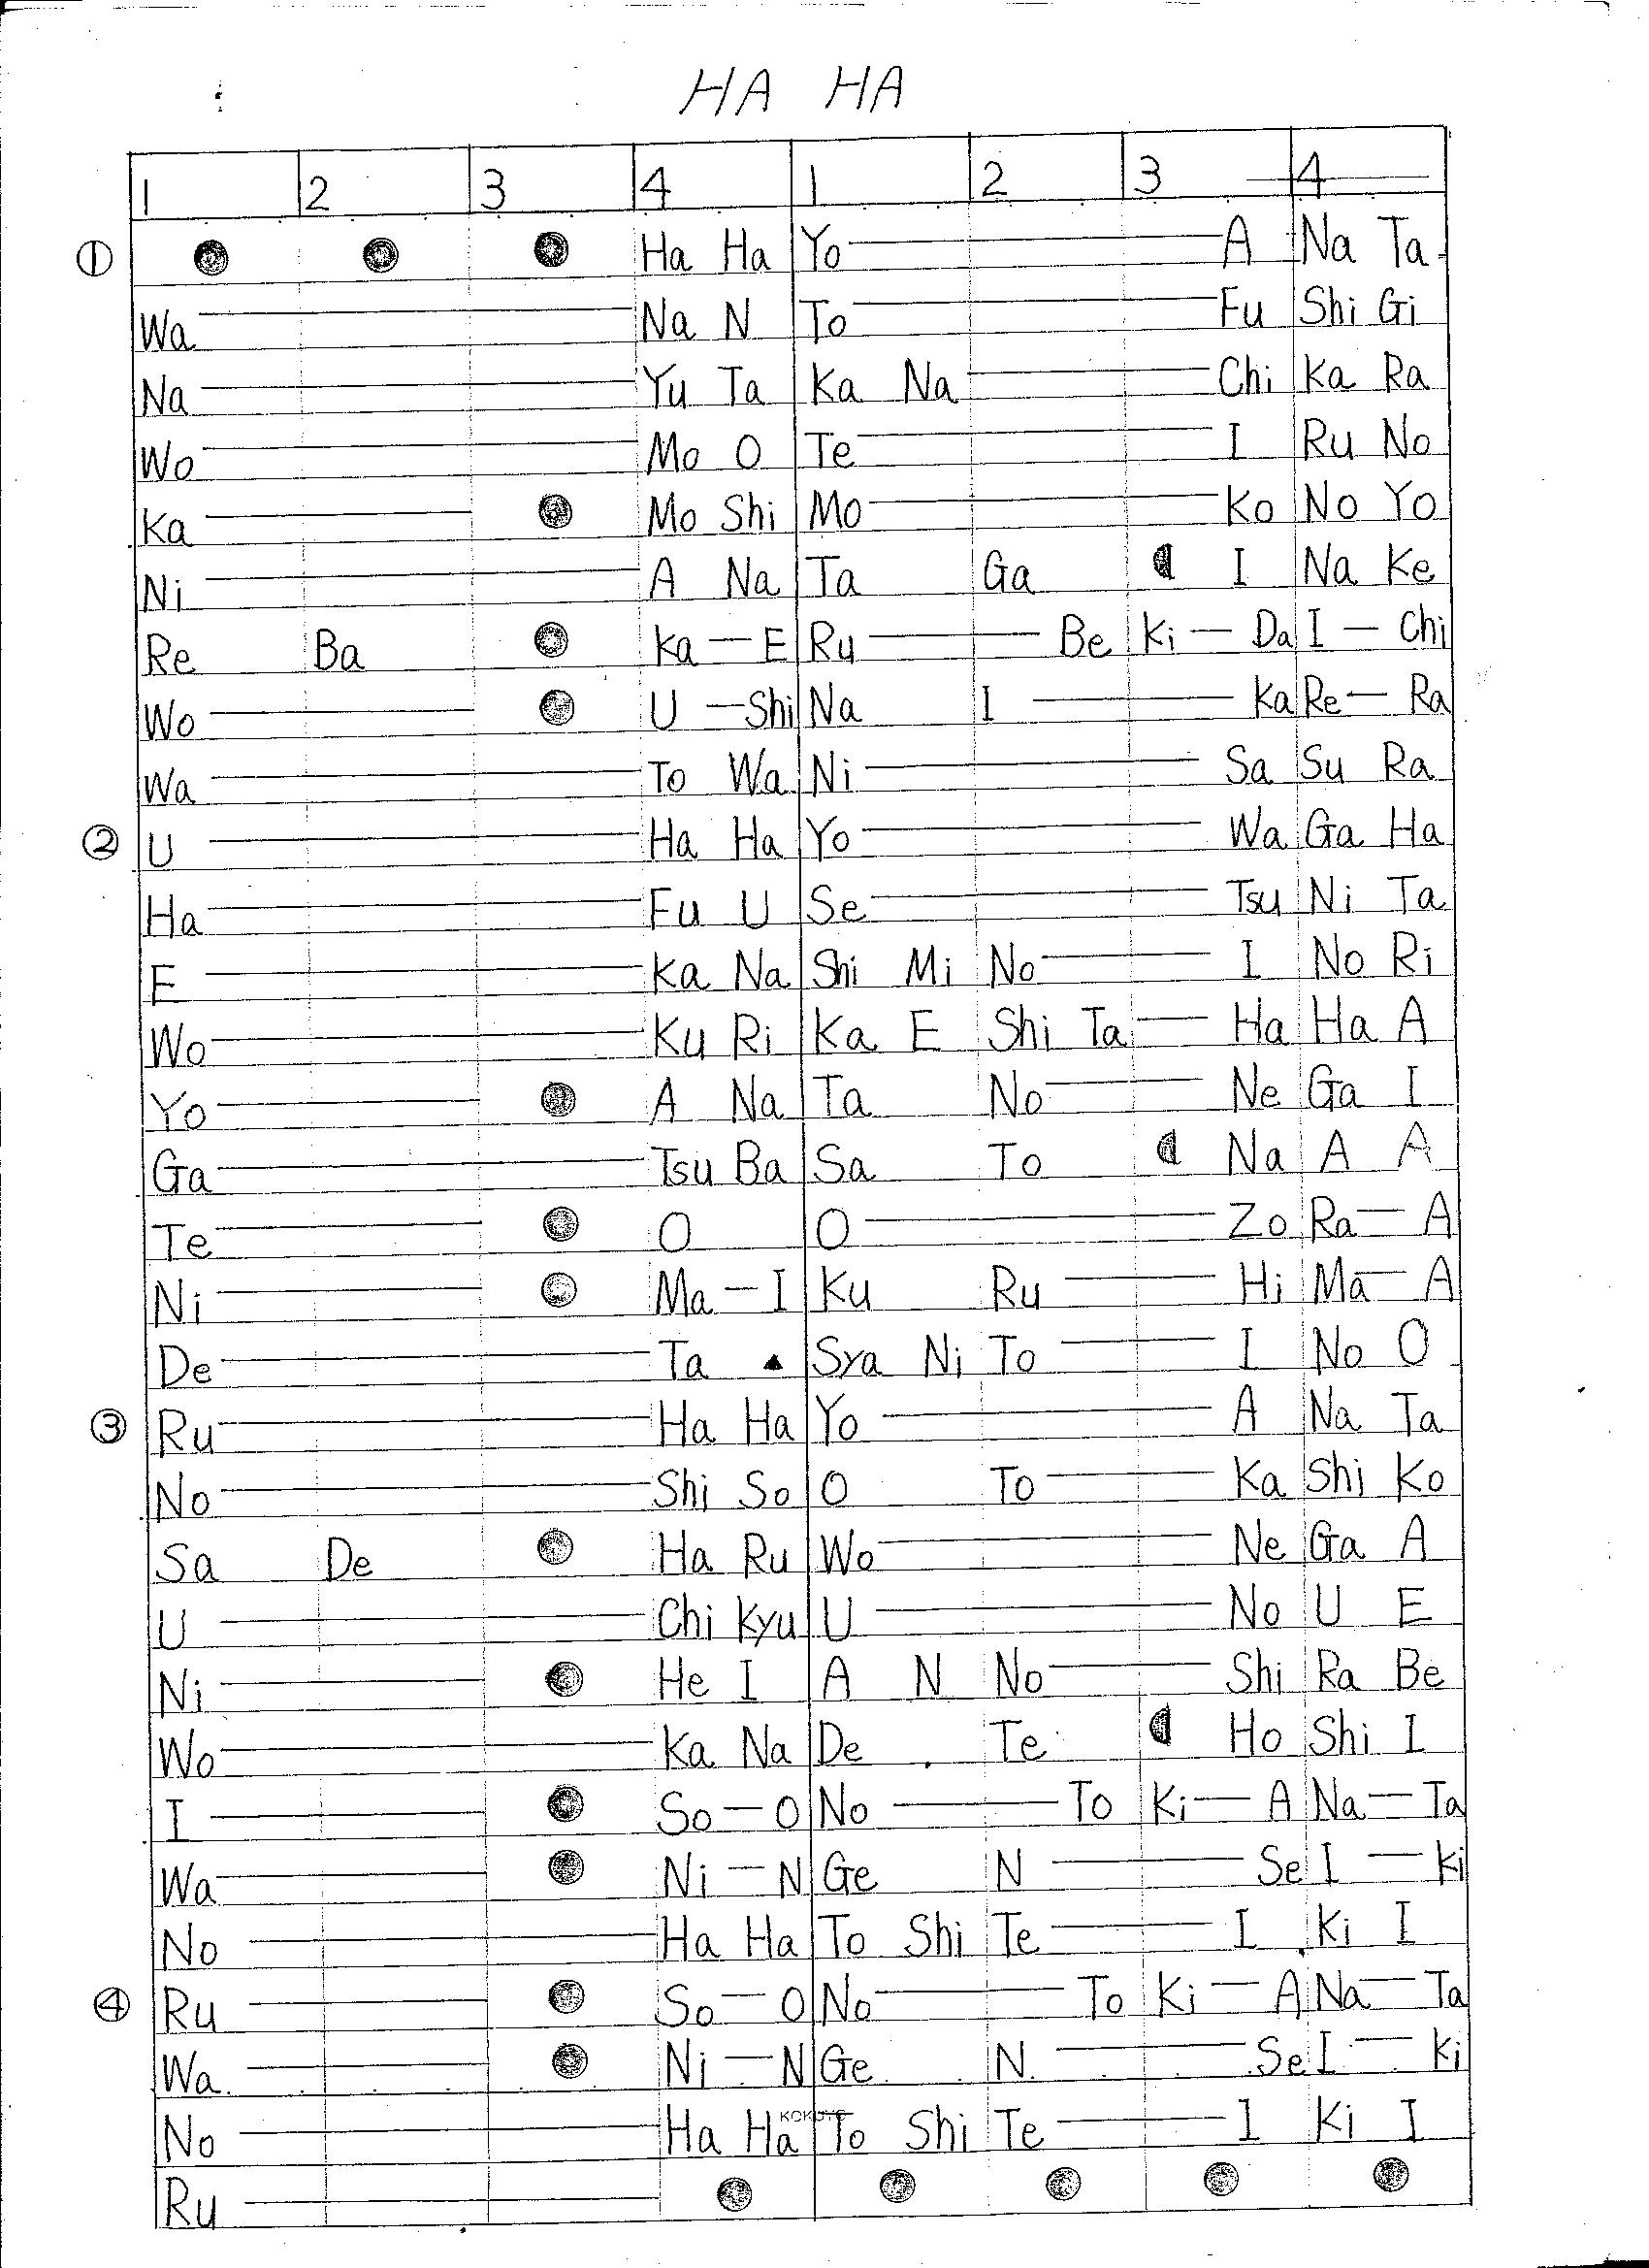 HA HA
1 2 3 4 1 2 3 4
① Ha Ha Yo A Na Ta
Wa Na N To Fu Shi Gi
Na Yu Ta Ka Na Chi Ka Ra
Wo Mo O Te I Ru No
Ka Mo Shi Mo Ko No Yo
Ni A Na Ta Ga I Na Ke
Re Ba Ka — E Ru — Be Ki — Da I — Chi
Wo U — Shi Na I — Ka Re — Ra
Wa To Wa Ni Sa Su Ra
② U Ha Ha Yo Wa Ga Ha
Ha Fu U Se Tsu Ni Ta
E Ka Na Shi Mi No I No Ri
Wo Ku Ri Ka E Shi Ta — Ha Ha A
Yo A Na Ta No Ne Ga I
Ga Tsu Ba Sa To Na A A
Te O O Zo Ra — A
Ni Ma — I Ku Ru Hi Ma — A
De Ta Sya Ni To I No O
③ Ru Ha Ha Yo A Na Ta
No Shi So O To Ka Shi Ko
Sa De Ha Ru Wo Ne Ga A
U Chi Kyu U No U E
Ni He I A N No Shi Ra Be
Wo Ka Na De Te Ho Shi I
I So — O No — To Ki — A Na — Ta
Wa Ni — N Ge N — Se I — Ki
No Ha Ha To Shi Te I Ki I
④ Ru So — O No — To Ki — A Na — Ta
Wa Ni — N Ge N — Se I — Ki
No Ha Ha To Shi Te I Ki I
KOKUYO
Ru